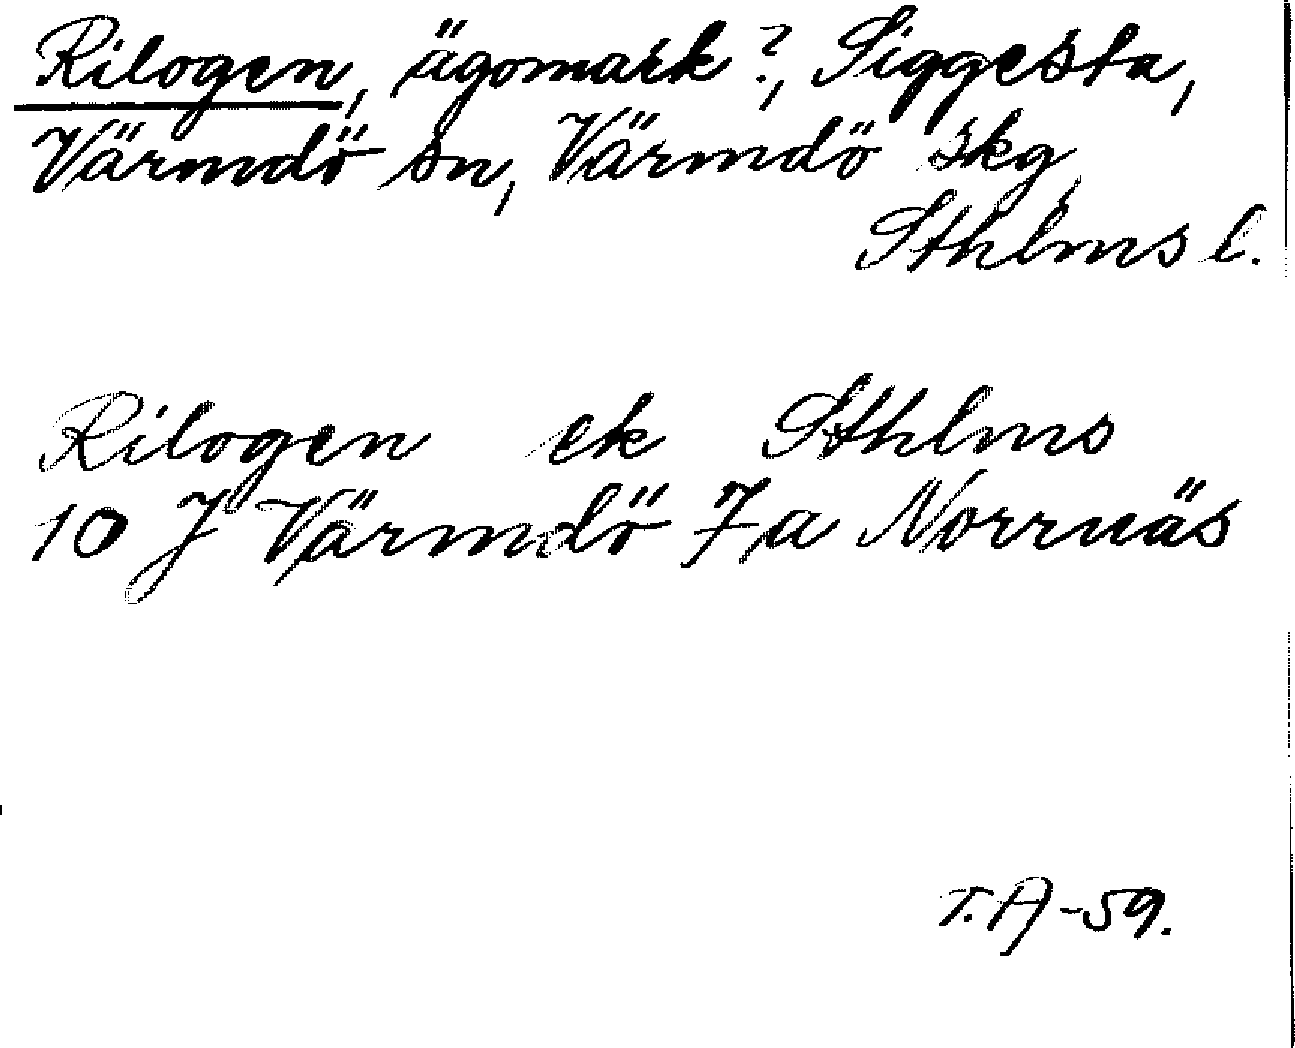 Rilogen, ägomark?, Siggesta,
Värmdö sn, Värmdö skg
Sthlms l.
Rilogen ek Sthlms
10 J Värmdö 7a Norrnäs
T.A-59.